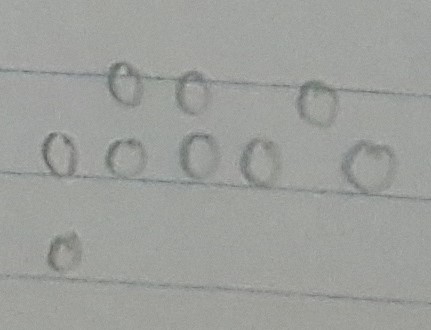 0 0 0
0 0 0 0 0
0